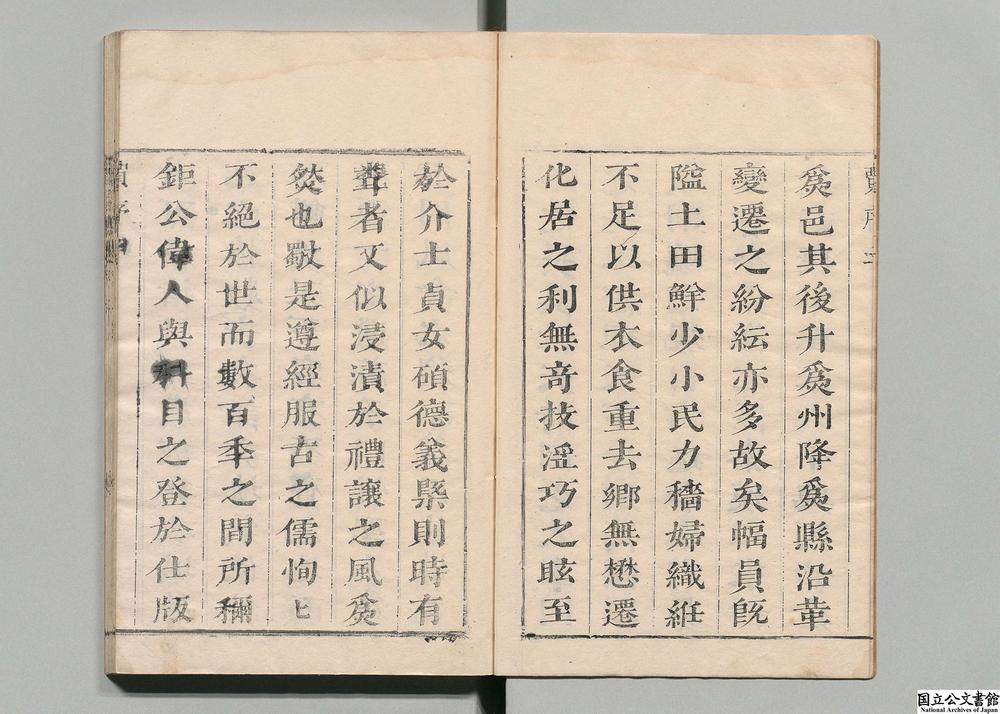 爲邑其後升爲州降爲縣沿革
變遷之紛紜亦多故矣幅員旣
隘土田鮮少小民力穡婦織紝
不足以供衣食重去鄉無懋遷
化居之利無奇技淫巧之眩至
於介士貞女碩德義槩則時有
聳者又似浸漬於禮讓之風爲
焂也歟是遵經服古之儒恂〻
不絕於世而數百年之間所稱
鉅公偉人與科目之登於仕版
國立公文書館
National Archives of Japan